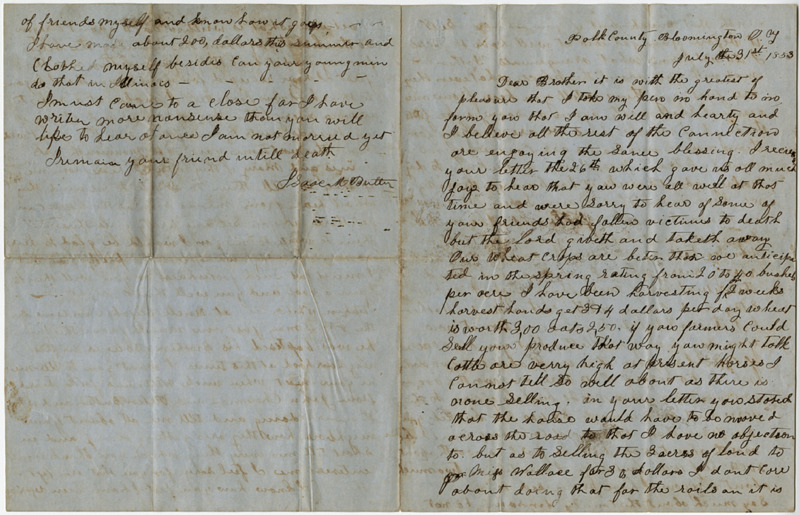 of friends myself and know how it goes
I have made about 200, dollars this summer and
Clothed myself besides Can your young men
do that in Illinois —
I must Come to a close for I have
writen more nonsense than you will
like to hear at once I am not married yet
I remain your friend untill death
Isaac M Butler
Polk County Bloomington O T
July the 31st 1853
Dear Brother it is with the greatest of
pleasure that I take my pen in hand to in
form you that I am well and hearty and
I believe all the rest of the Connection
are enjoying the same blessing. I received
your letter the 26th which gave us all much
joye to hear that yaw were all well at that
time and were Sorry to hear of Some of
your friends had fallen victims to death
but the Lord giveth and taketh away
Our Wheat Crops are beter than we anticipa
ted in the spring rating from 20 to 40 bushes
per acre I have been harvesting for 2 weeks
harvest hands get 3 & 4 dollars per day wheat
is worth 3,00 a to 2,50. if you farmers Could
Sell your produce that way yaw might talk
Cattle are verry high at present horses I
Cannot tell so well about as there is
none Selling. in your letter you stated
that the house would have to be moved
across the road to that I have no objection
to. but as to Selling the 3 acres of land to
Miss Wallace for 36 dollars I dont Care
about doing that for the rails on it is